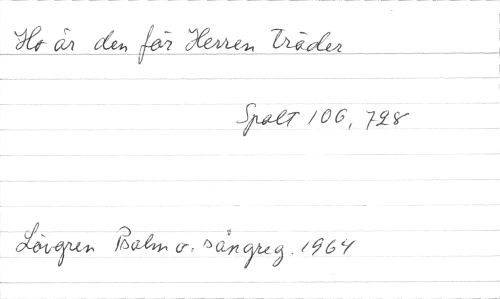 Ho är den för Herren träder
Spalt 106, 728
Lövgren Psalm o. sångreg. 1964